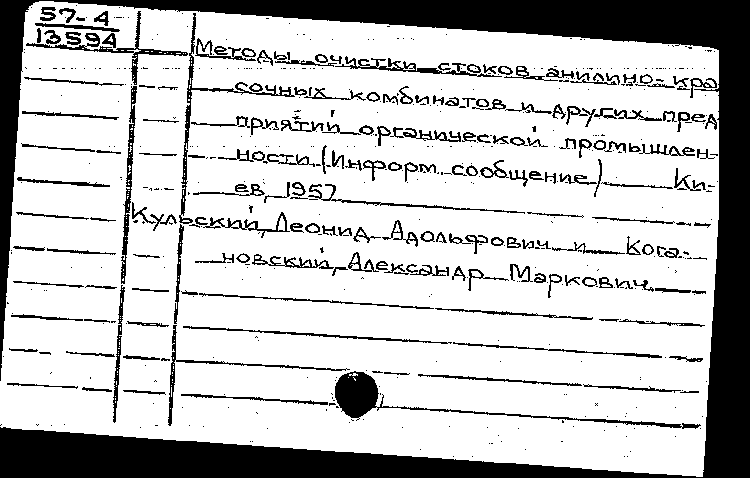 57-4
13594
Методы очистки стоков анилино-кра
сочных комбинатов и других пред
приятий органической промышлен-
ности (Информ. сообщение) Ки-
ев, 1957
Кульский, Леонид Адольфович и Кога-
новский, Александр Маркович